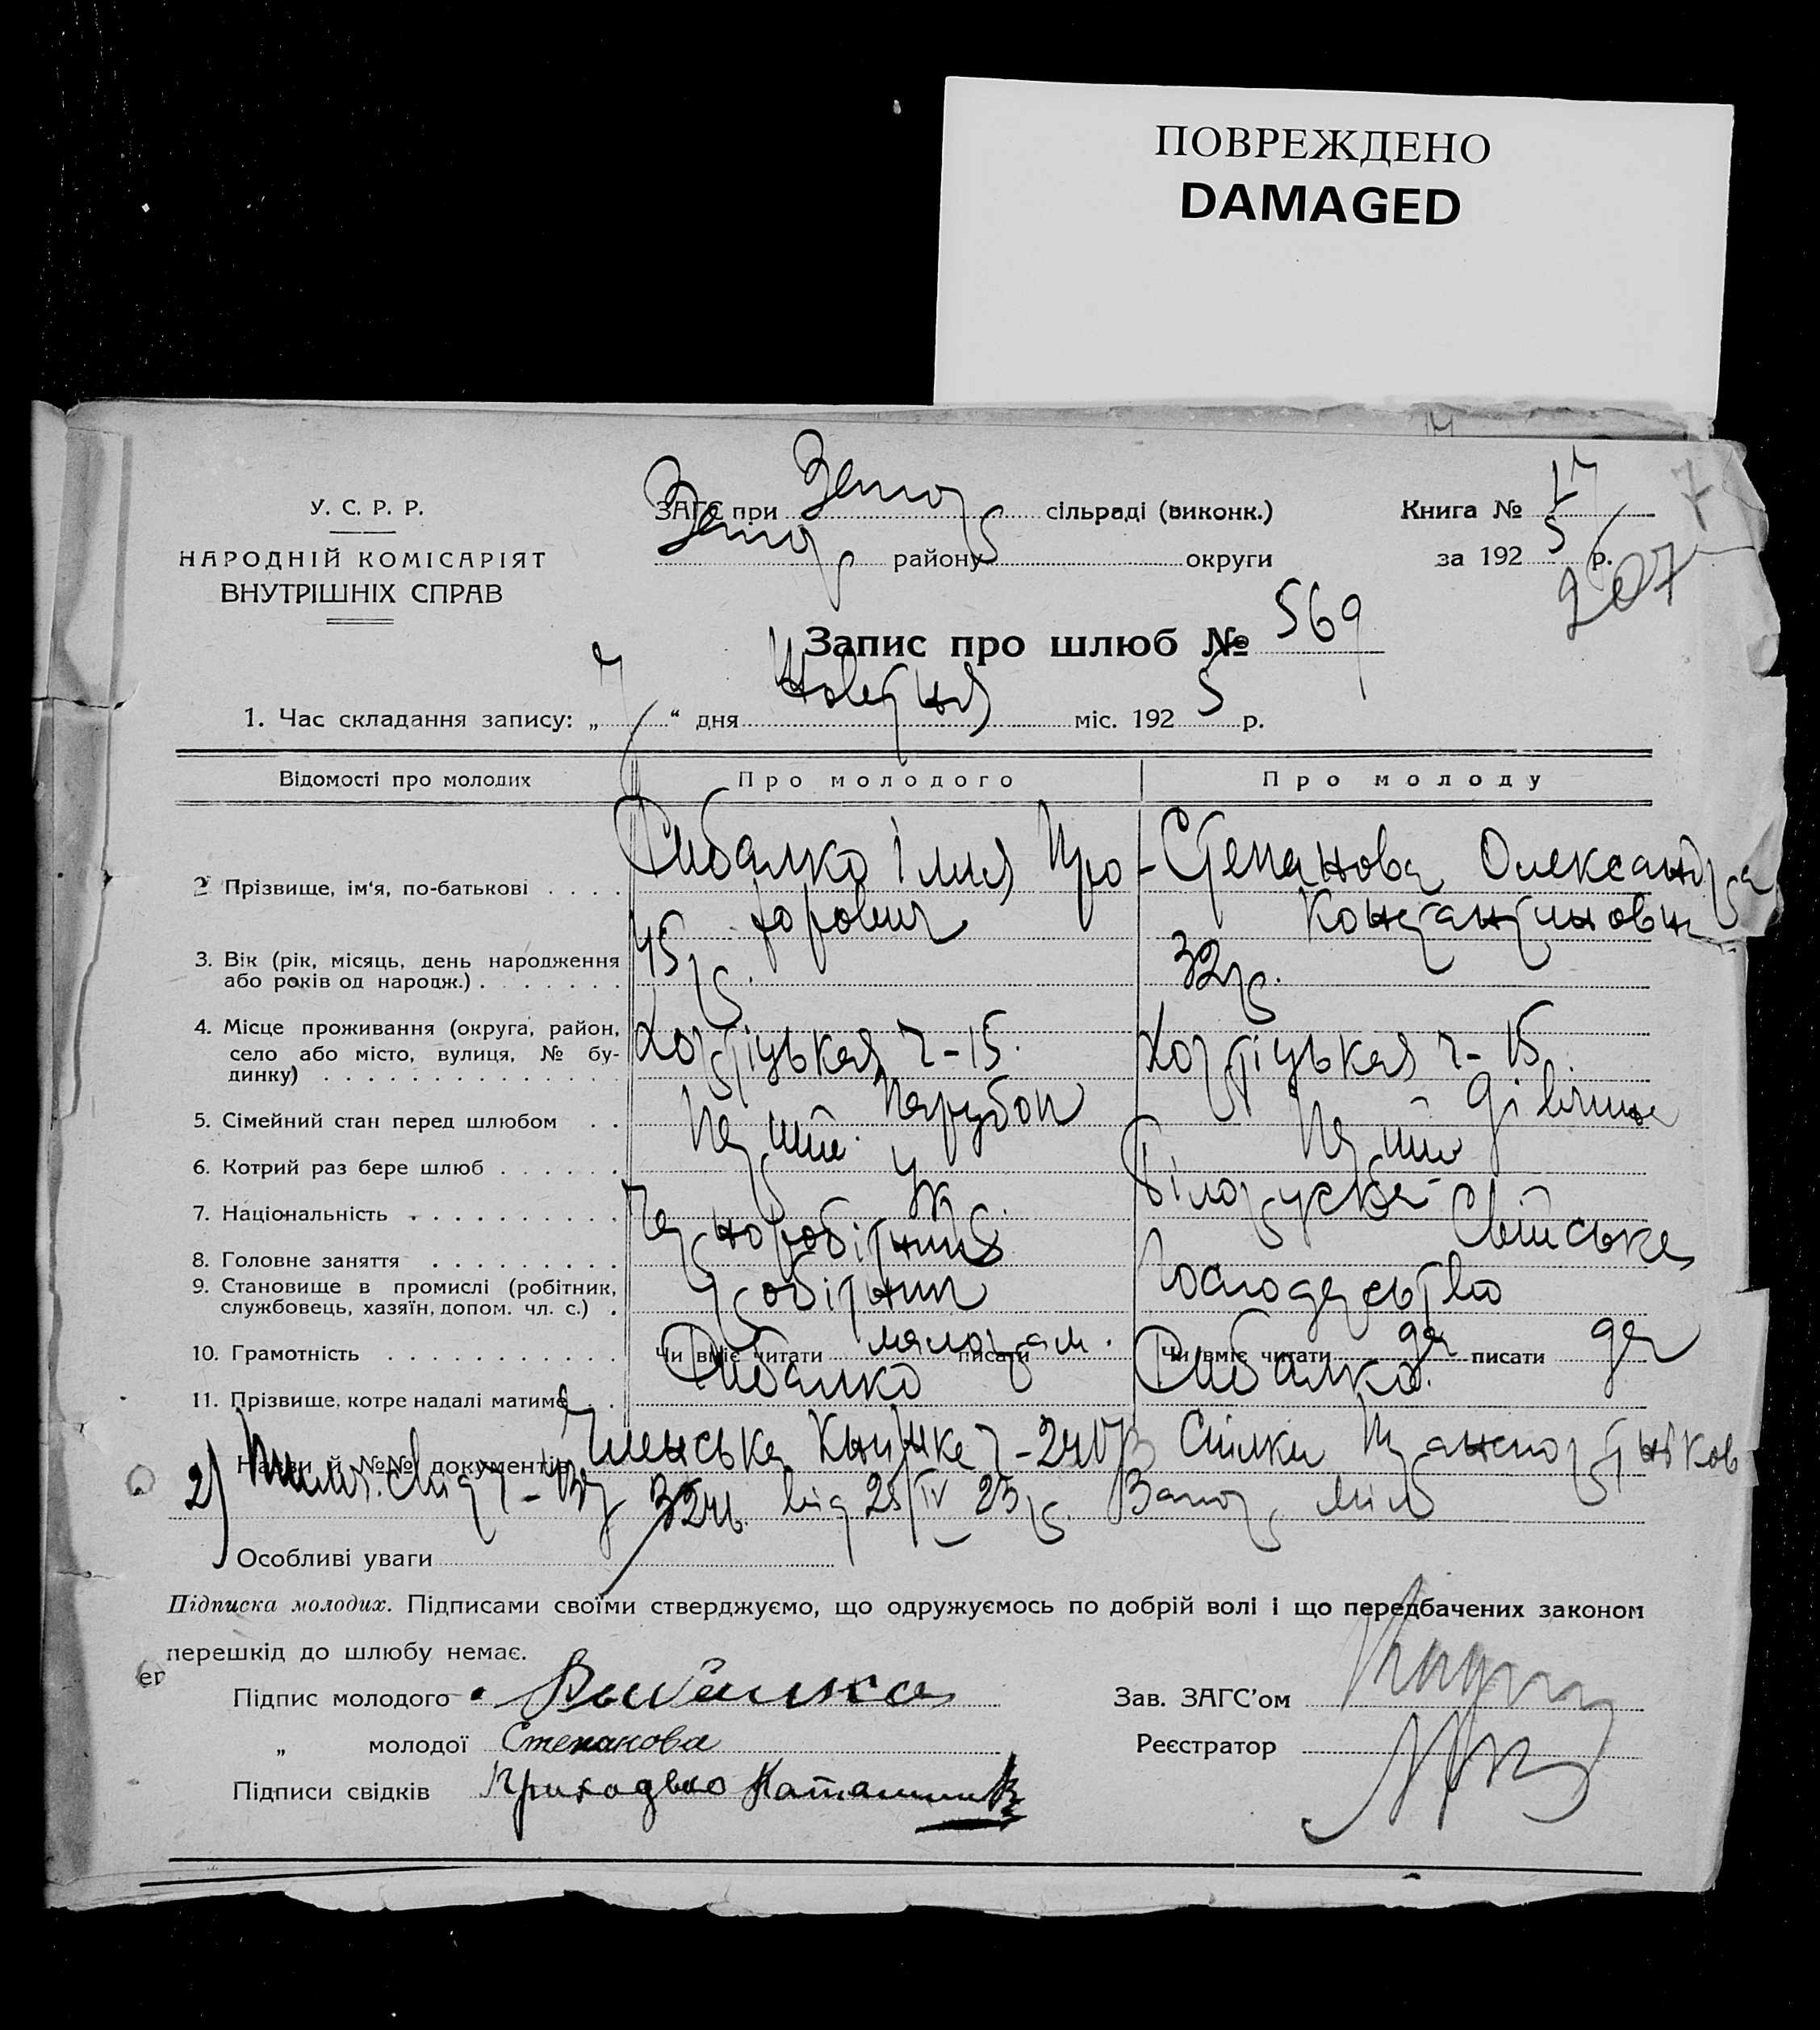 ПОВРЕЖДЕНО
DAMAGED
У. С. Р. Р.
НАРОДНІЙ КОМІСАРІЯТ
ВНУТРІШНІХ СПРАВ
ЗАГС при Запор сільраді (виконк.)
Запор району округи
Книга № 17
за 1925 р.
7
207
Запис про шлюб № 569
1. Час складання запису: „ 7 “ дня Жовтня міс. 1925 р.
Відомості про молодих Про молодого Про молоду
2 Прізвище, ім‘я, по-батькові . . . . Рибалко Ілия Про- Степанова Олександра
форович Константиновна
3. Вік (рік, місяць, день народження 45 р. 32 р.
або років од народж.) . . . . . . .
4. Місце проживання (округа, район,
село або місто, вулиця, № бу- Хортіцькая ч-15. Хортіцькая ч-15.
динку) . . . . . . . . . . . . . . .
5. Сімейний стан перед шлюбом . . Парубок Дівчина
6. Котрий раз бере шлюб . . . . . . Перший. Перший
7. Національність . . . . . . . . . . Укр. Білоруска
8. Головне заняття . . . . . . . . . Черноробітник Свійське
9. Становище в промислі (робітник, Робітник Господарьство
службовець, хазяїн, допом. чл. с.) .
10. Грамотність . . . . . . . . . . . Чи вміє читати малограм. писати Чи вміє читати да писати да
11. Прізвище, котре надалі матиме . . Рибалко Рибалко.
Назви й №№ документів Членська Книжка ч- Спілки Транспортників
2) від 25/IV 23 р. Запор. міл
Особливі уваги
Підписка молодих. Підписами своїми стверджуємо, що одружуємось по добрій волі і що передбачених законом
перешкід до шлюбу немає.
ер
Підпис молодого Рыбалка Зав. ЗАГС’ом
„ молодої Степанова Реєстратор
Підписи свідків Приходько